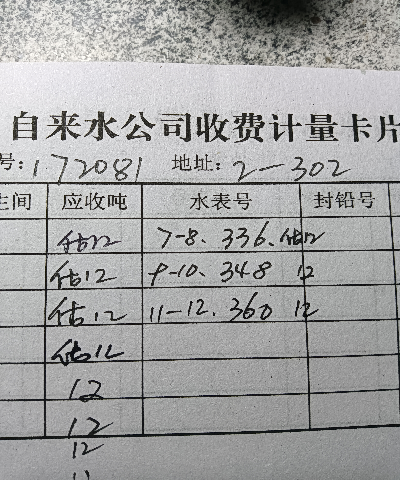 自来水公司收费计量卡片
号:172081 地址:2-302
生间 应收吨 水表号 封铅号
估12 7-8. 336. 估12
估12 9-10. 348 12
估12 11-12. 360 12
估12
12
12
12